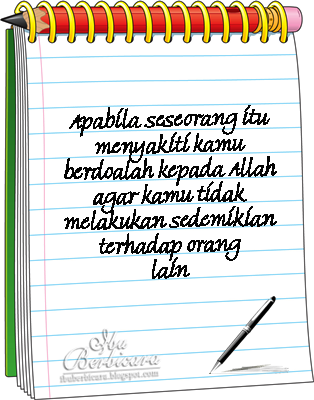 Apabila seseorang itu
menyakiti kamu
berdoalah kepada Allah
agar kamu tidak
melakukan sedemikian
terhadap orang
lain
Ibu
Berbicara
ibuberbicara.blogspot.com